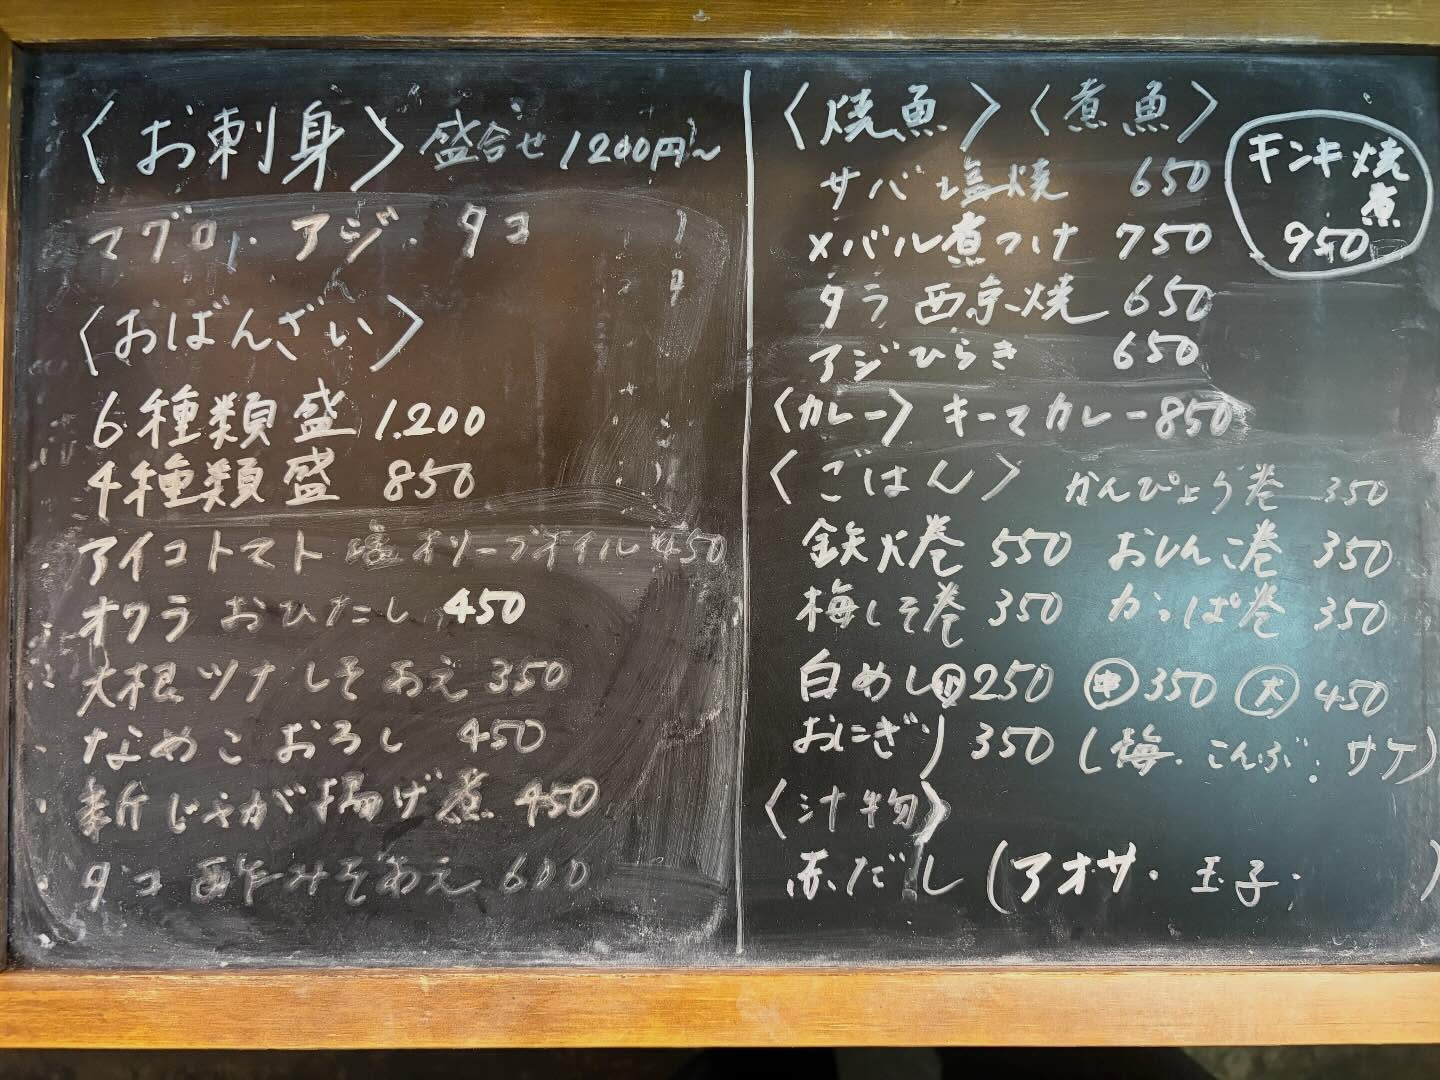 〈お刺身〉盛合せ 1200円〜
マグロ、アジ、タコ
〈おばんざい〉
6種類盛 1.200
4種類盛 850
アイコトマト 塩オリーブオイル 450
オクラ おひたし 450
大根ツナしそあえ 350
なめこおろし 450
新じゃが揚げ煮 450
タコ酢みそあえ 600
〈焼魚〉〈煮魚〉
サバ塩焼 650
メバル煮つけ 750
タラ西京焼 650
アジひらき 650
キンキ焼
煮
950
〈カレー〉キーマカレー 850
〈ごはん〉 かんぴょう巻 350
鉄火巻 550 おしんこ巻 350
梅しそ巻 350 かっぱ巻 350
白めし小250 中350 大450
おにぎり 350 (梅・こんぶ・サケ)
〈汁物〉
赤だし (アオサ・玉子・ )